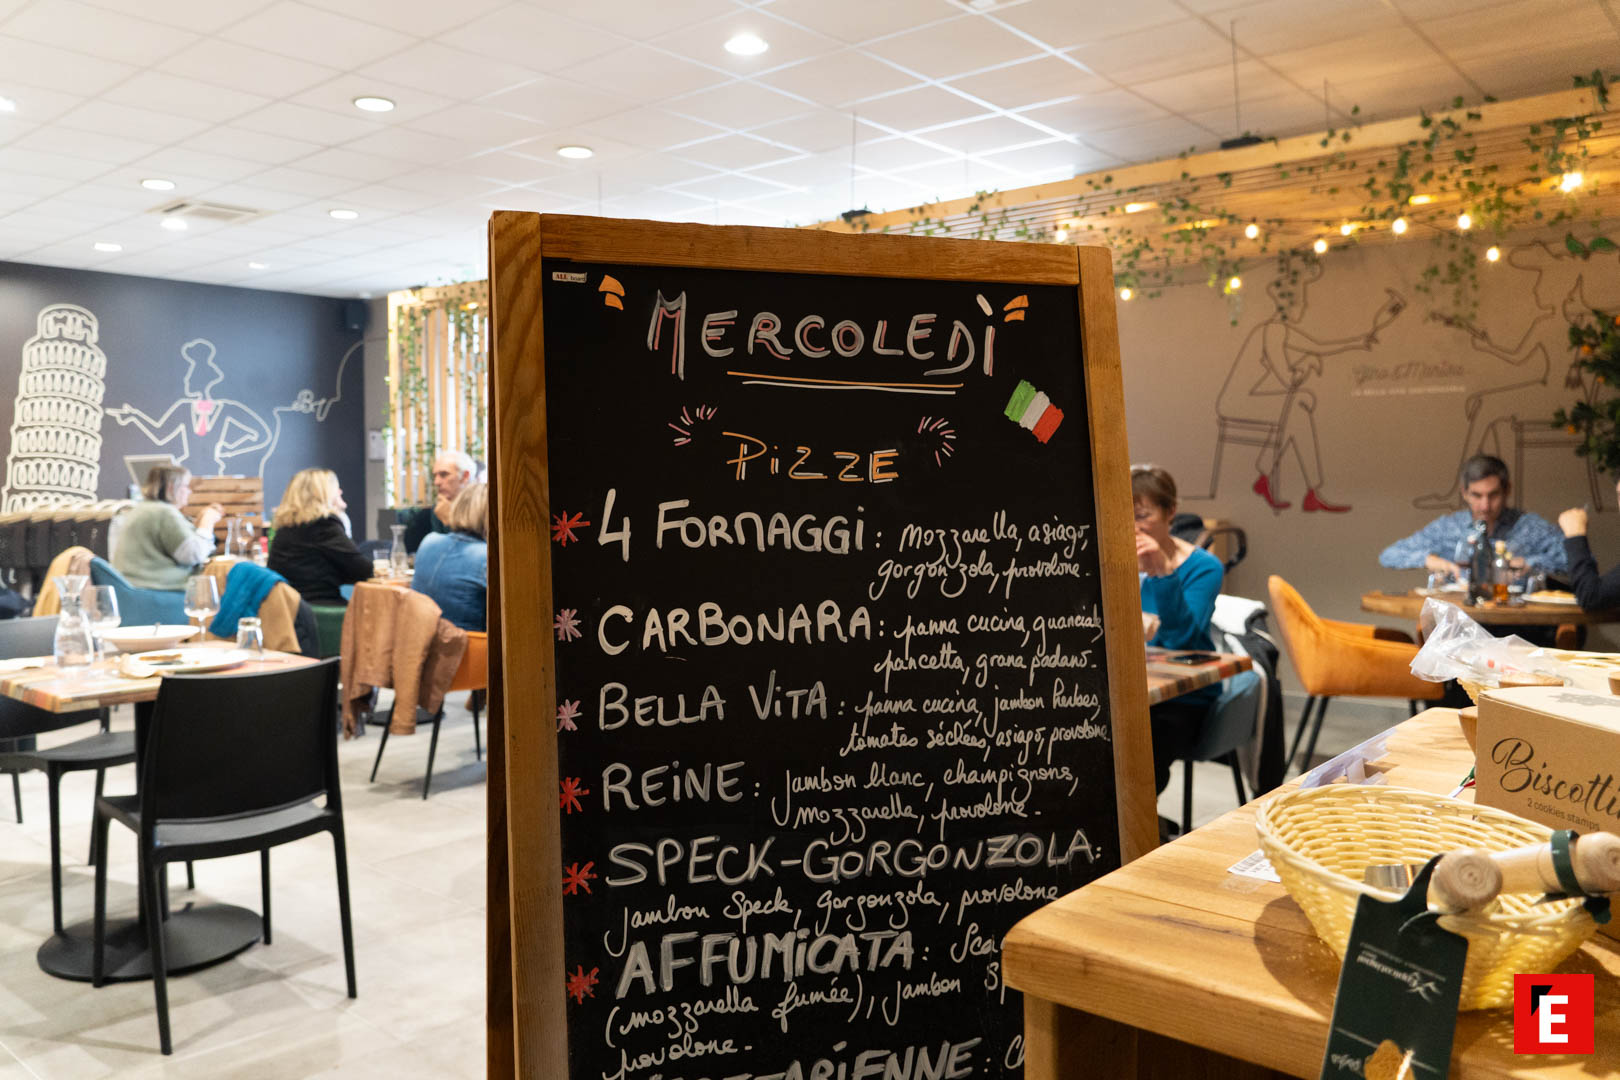 ALL board
MERCOLEDÌ
PiZZE
4 FORMAGGi : mozzarella, asiago,
gorgonzola, provolone.
CARBONARA : panna cucina, guanciale
pancetta, grana padano.
BELLA ViTA : panna cucina, jambon herbes,
tomates séchées, asiago, provolone.
REiNE : jambon blanc, champignons,
mozzarella, provolone.
SPECK-GORGONZOLA :
jambon Speck, gorgonzola, provolone
AFFUMiCATA : Sca
(mozzarella fumée), jambon Sp
provolone.
Biscotti
2 cookies stamps
E